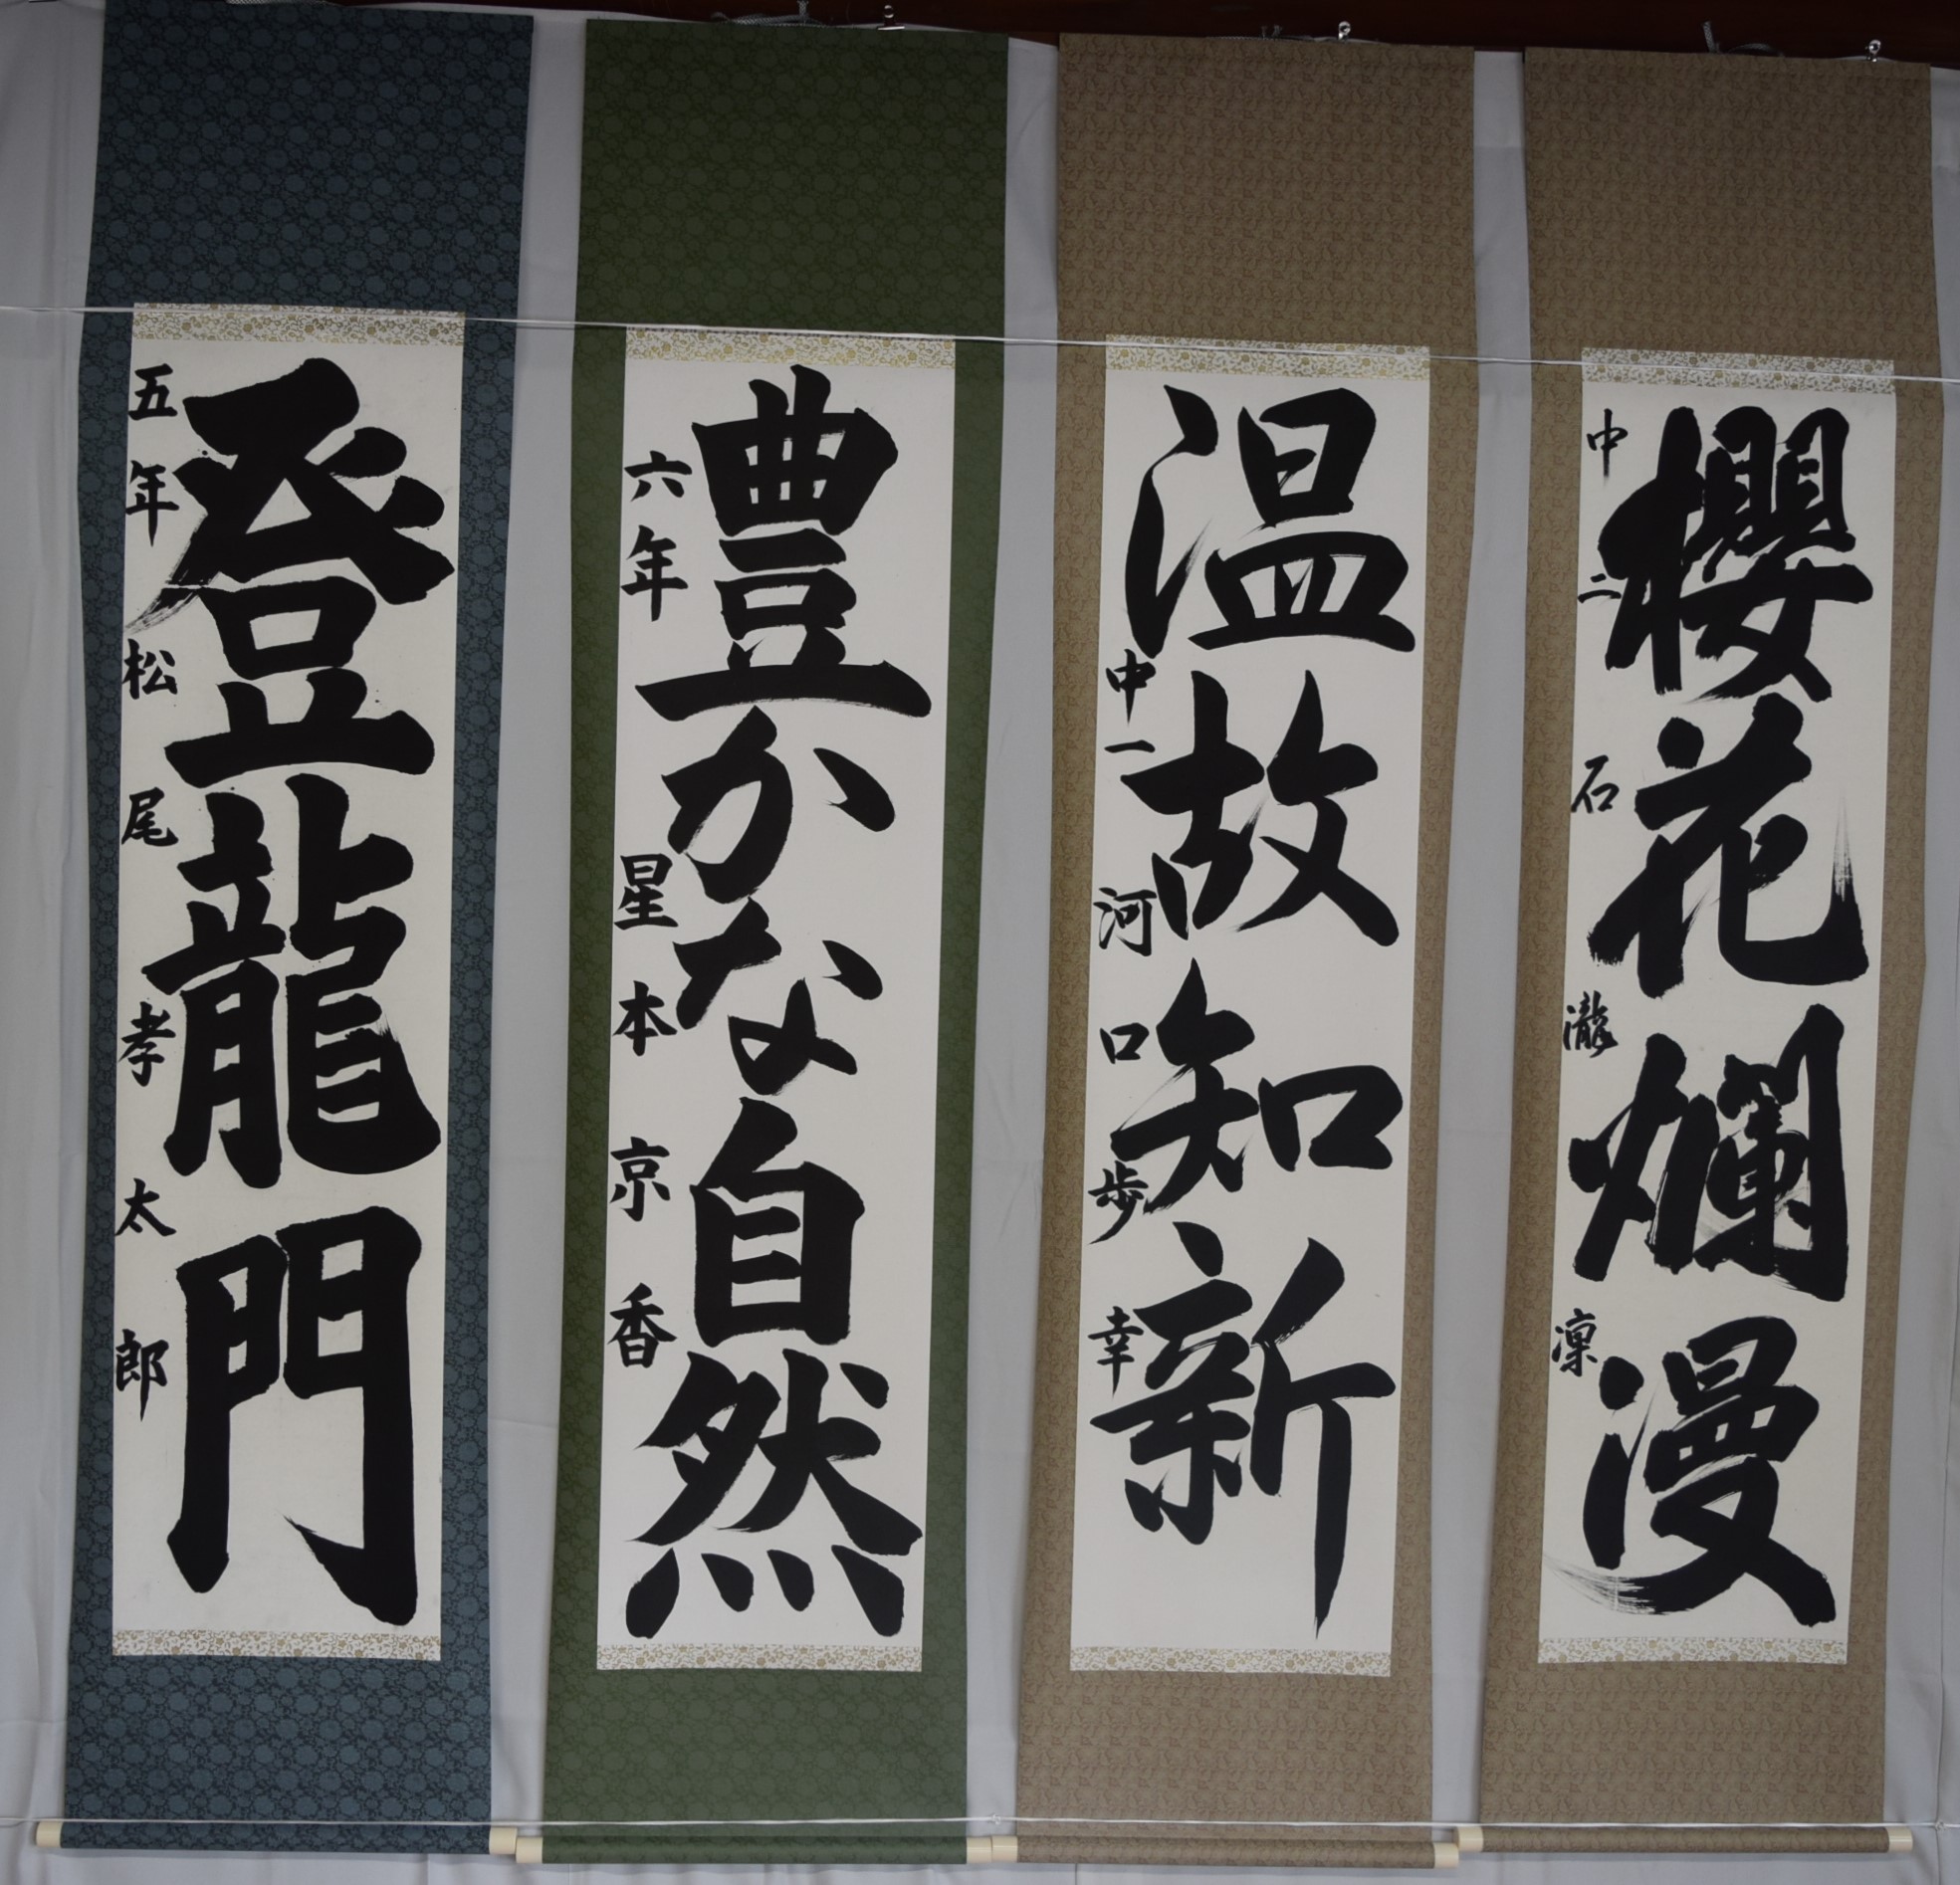 櫻花爛漫
中二 石瀧凜
温故知新
中一 河口歩幸
豊かな自然
六年 星本京香
登龍門
五年 松尾孝太郎